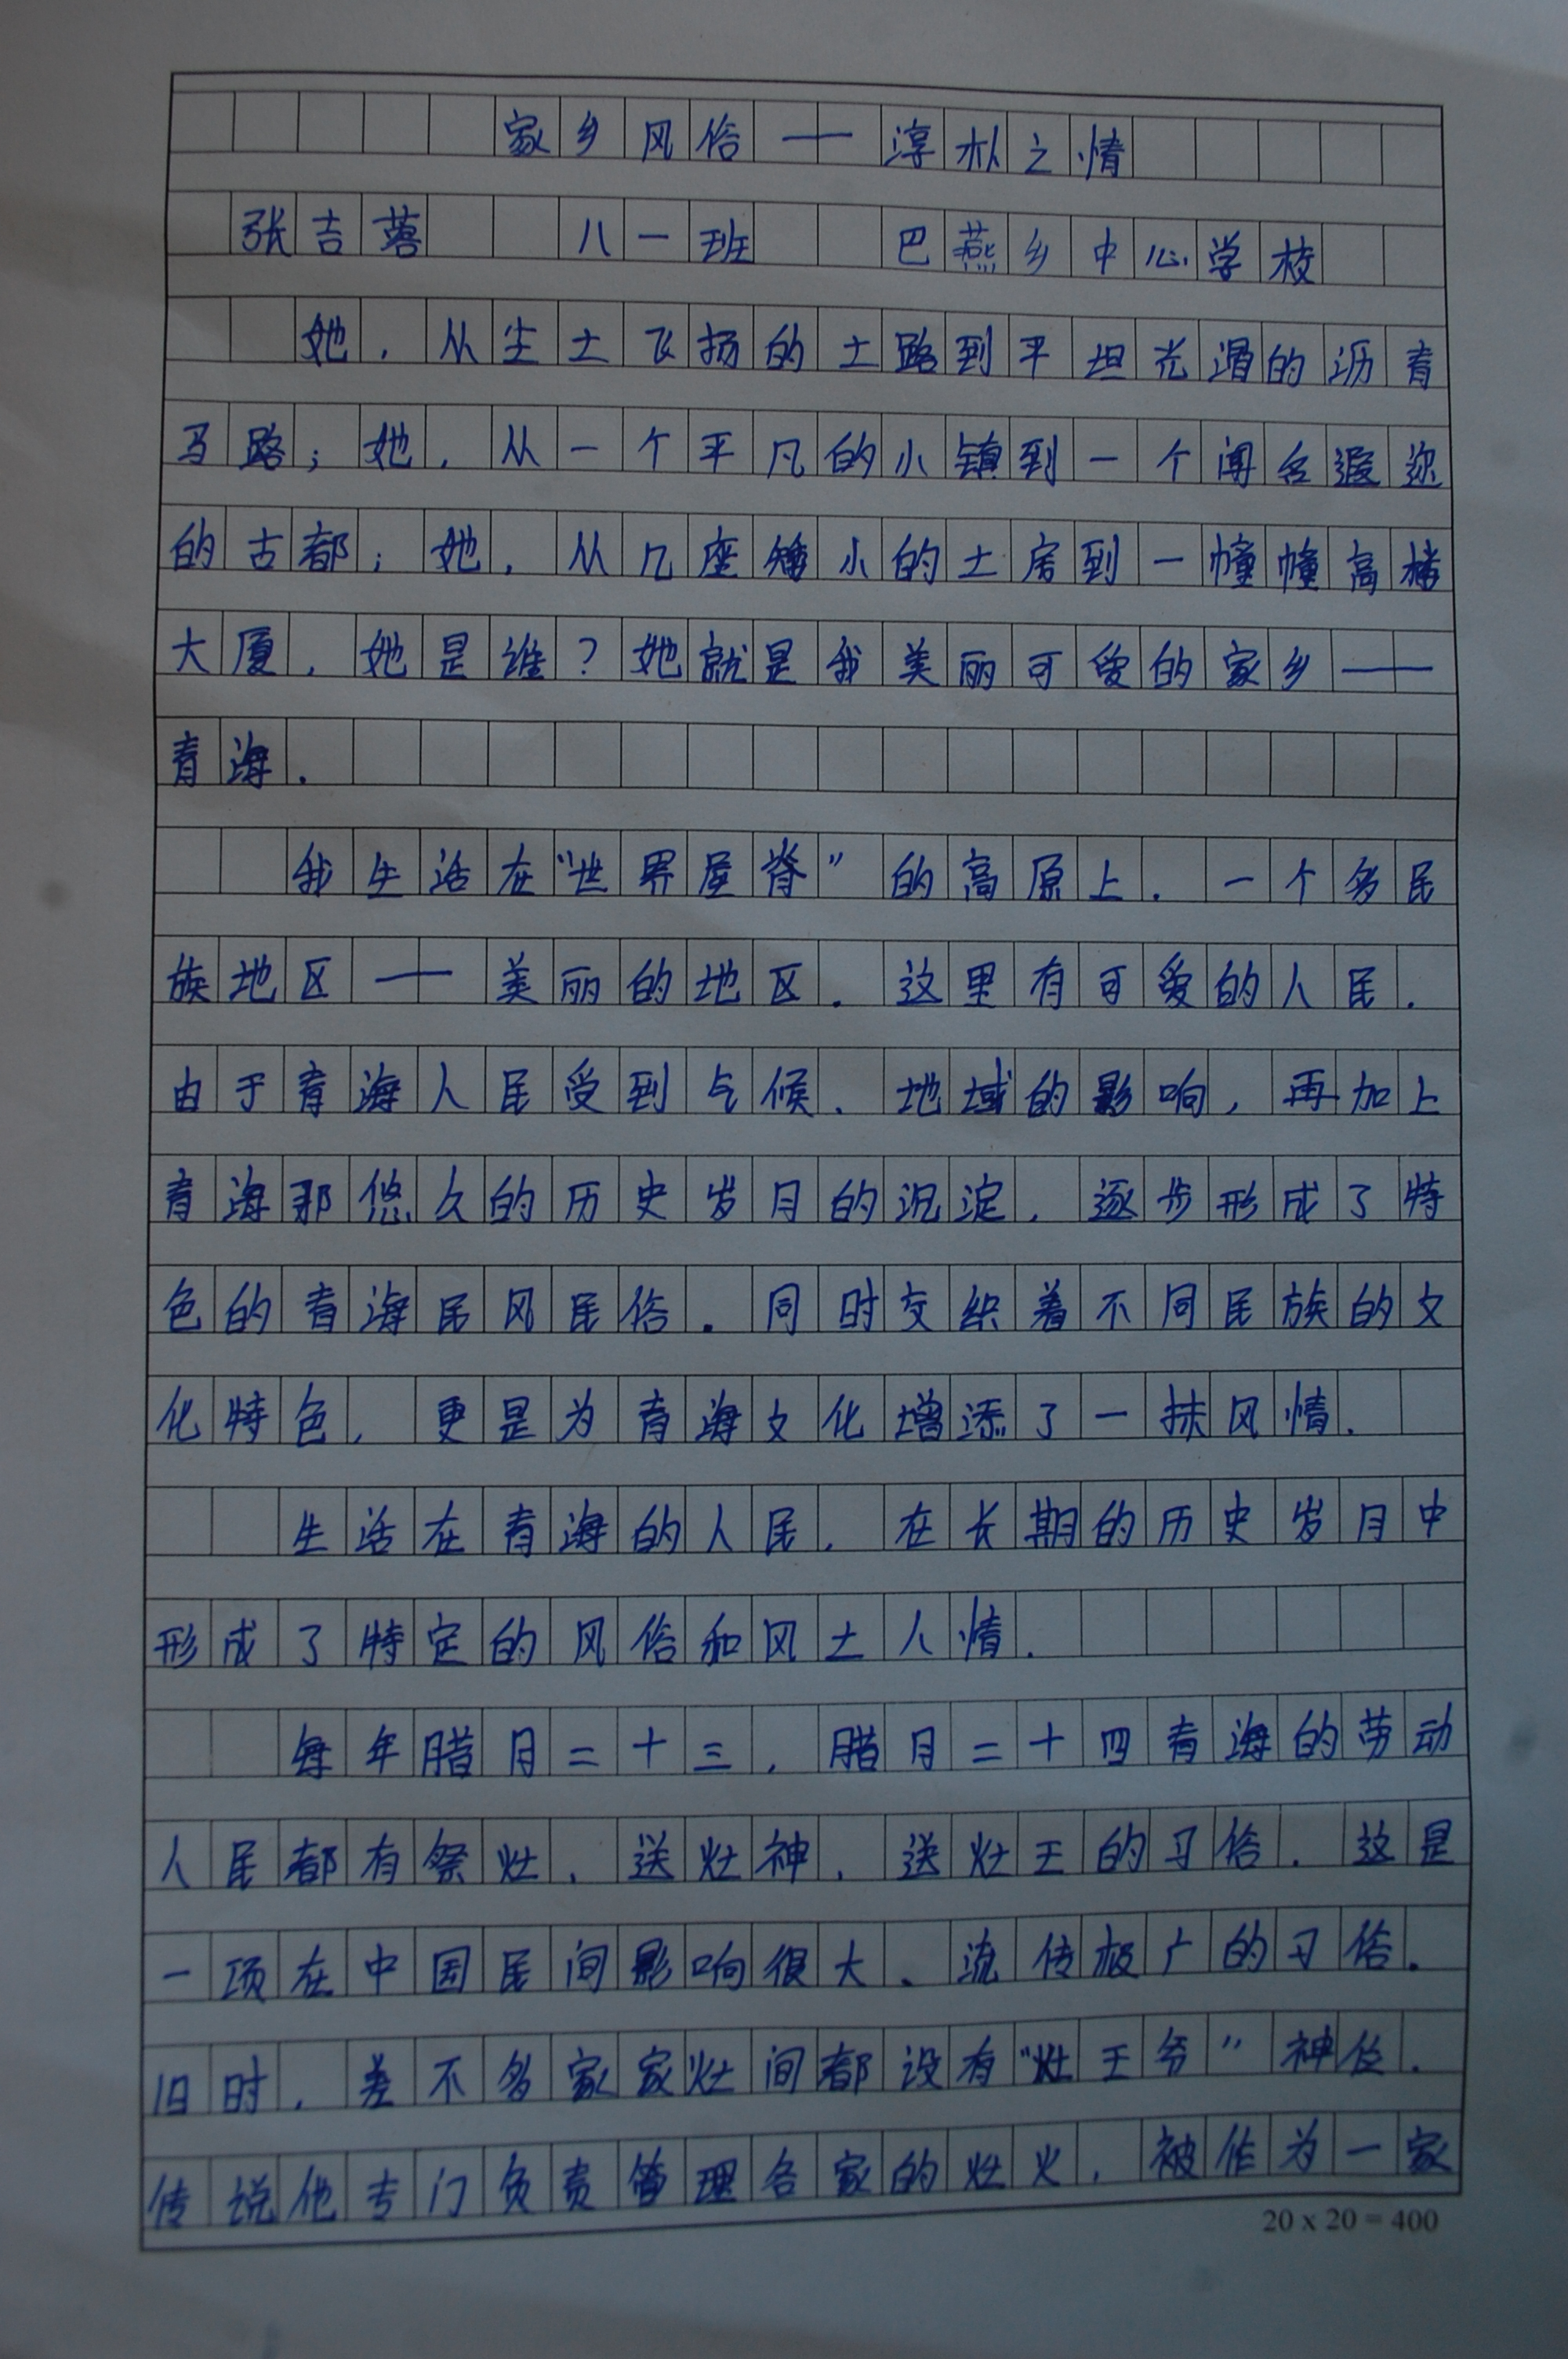 家乡风俗——淳朴之情
张吉蓉 八一班 巴燕乡中心学校
她，从尘土飞扬的土路到平坦光滑的沥青
马路；她，从一个平凡的小镇到一个闻名遐迩
的古都；她，从几座矮小的土房到一幢幢高楼
大厦，她是谁？她就是我美丽可爱的家乡——
青海.
我生活在“世界屋脊”的高原上.一个多民
族地区——美丽的地区.这里有可爱的人民.
由于青海人民受到气候、地域的影响，再加上
青海那悠久的历史岁月的沉淀，逐步形成了特
色的青海民风民俗.同时交织着不同民族的文
化特色，更是为青海文化增添了一抹风情.
生活在青海的人民，在长期的历史岁月中
形成了特定的风俗和风土人情.
每年腊月二十三，腊月二十四青海的劳动
人民都有祭灶、送灶神、送灶王的习俗.这是
一项在中国民间影响很大、流传极广的习俗.
旧时，差不多家家灶间都设有“灶王爷”神位.
传说他专门负责管理各家的灶火，被作为一家
20 x 20 = 400